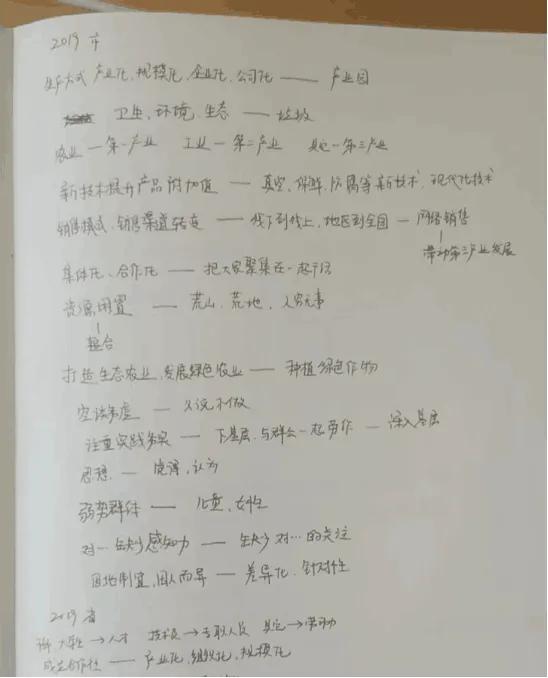 2019 市
生产方式 产业化,规模化,企业化,公司化 —— 产业园
卫生,环境,生态 —— 垃圾
农业 — 第一产业 工业 — 第二产业 其它 — 第三产业
新技术提升产品附加值 —— 真空、保鲜、防腐等新技术,现代化技术
销售模式,销售渠道转变 —— 线下到线上,地区到全国 — 网络销售
带动第三产业发展
集体化、合作化 —— 把大家聚集在一起干活
资源闲置 —— 荒山、荒地,人穷无事
整合
打造生态农业,发展绿色农业 —— 种植绿色作物
空谈务虚 —— 只说不做
注重实践务实 —— 下基层,与群众一起劳作 — 深入基层
思想 —— 觉得,认为
弱势群体 —— 儿童,女性
对…缺少感知力 —— 缺少对…的关注
因地制宜,因人而异 —— 差异化,针对性
2019 省
大学生 → 人才 技术员 → 专职人员 其它 → 带动
成立合作社 —— 产业化,组织化,规模化